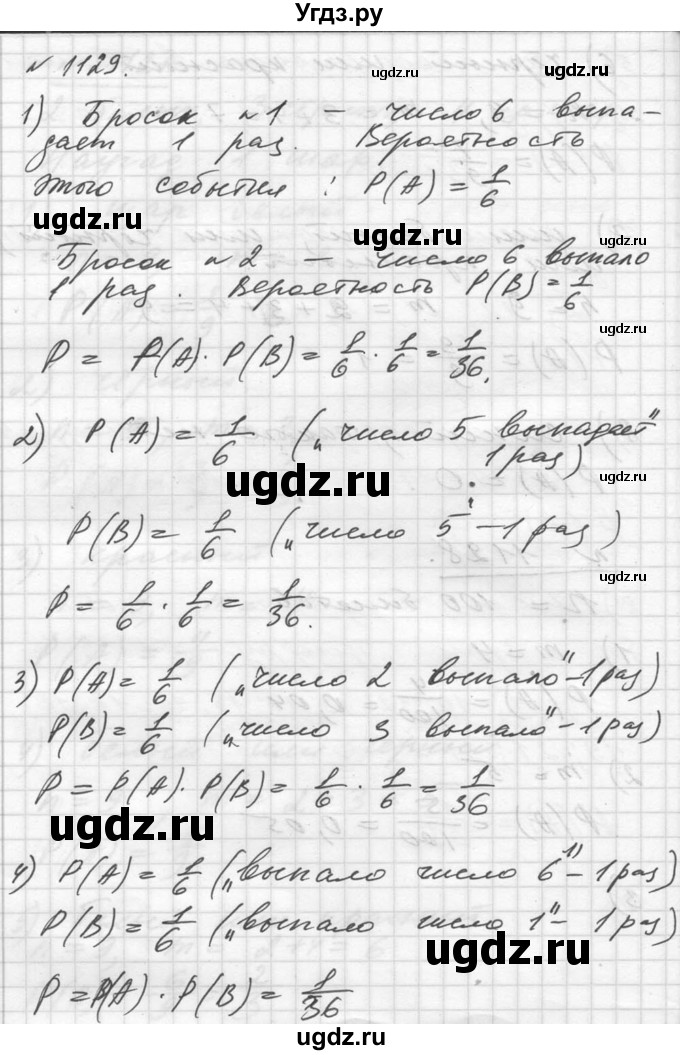 Угдз.ру
№ 1129.
1) Бросок №1 – число 6 выпа-
дает 1 раз. Вероятность
этого события : P(A) = 1/6
Бросок №2 – число 6 выпало
1 раз. Вероятность P(B) = 1/6
P = P(A) · P(B) = 1/6 · 1/6 = 1/36.
2) P(A) = 1/6 („число 5 выпадает"
1 раз)
P(B) = 1/6 („число 5 – 1 раз)
P = 1/6 · 1/6 = 1/36.
3) P(A) = 1/6 („число 2 выпало" – 1 раз)
P(B) = 1/6 („число 3 выпало" – 1 раз)
P = P(A) · P(B) = 1/6 · 1/6 = 1/36
4) P(A) = 1/6 („выпало число 6" – 1 раз)
P(B) = 1/6 („выпало число 1" – 1 раз)
P = P(A) · P(B) = 1/36
ugdz.ru
ugdz.ru
ugdz.ru
ugdz.ru
ugdz.ru
ugdz.ru
ugdz.ru
ugdz.ru
ugdz.ru
ugdz.ru
ugdz.ru
ugdz.ru